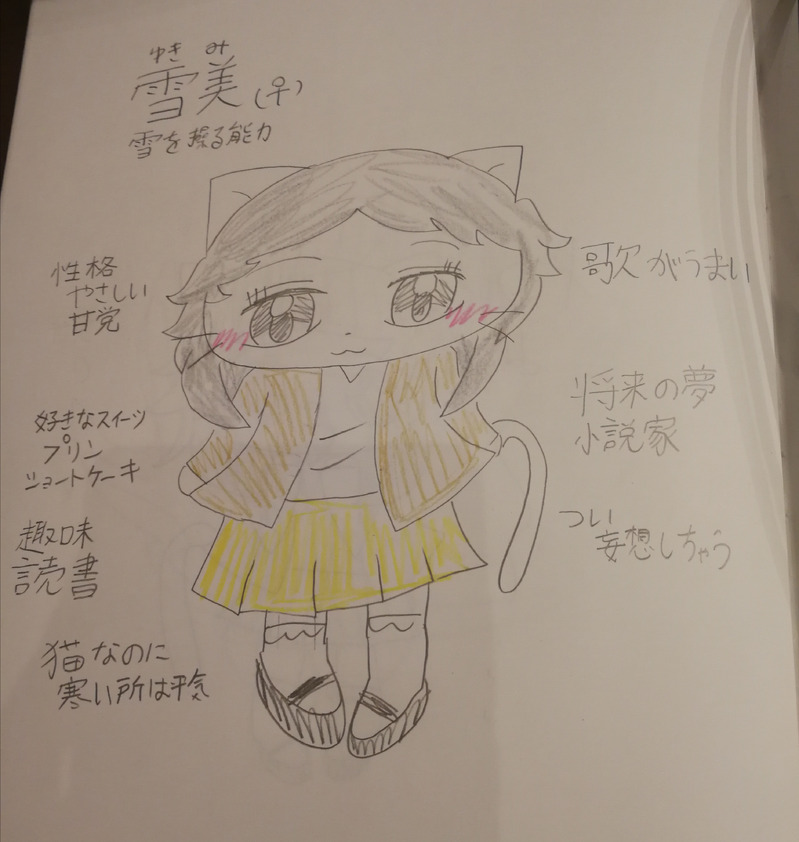 ゆきみ
雪美(♀)
雪を操る能力
性格
やさしい
甘党
好きなスイーツ
プリン
ショートケーキ
趣味
読書
猫なのに
寒い所は平気
歌がうまい
将来の夢
小説家
つい
妄想しちゃう